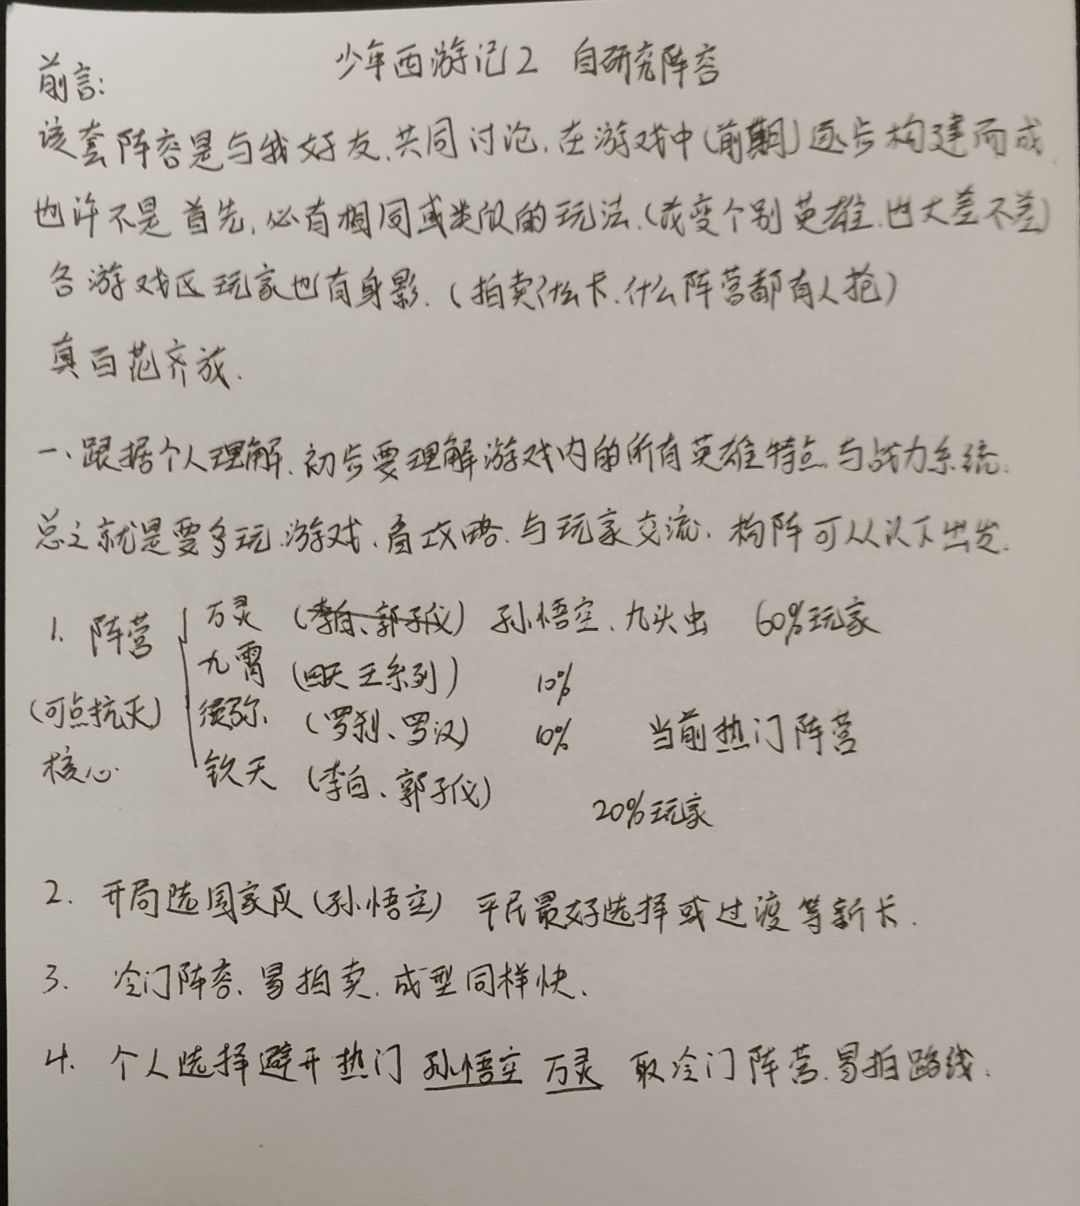 少年西游记2 自研究阵容
前言:
该套阵容是与我好友,共同讨论,在游戏中(前期)逐步构建而成
也许不是首先,必有相同或类似的玩法,(改变个别英雄,也大差不差)
各游戏区玩家也有身影.(拍卖什么卡,什么阵营都有人抢)
真百花齐放.
一、跟据个人理解,初步要理解游戏内的所有英雄特点与战力系统.
总之就是要多玩游戏,看攻略,与玩家交流,构阵可从以下出发.
1. 阵营 (可点抗灭) 核心
万灵 (李白、郭子仪) 孙悟空、九头虫 60%玩家
九霄 (四天王系列) 10%
须弥 (罗刹、罗汉) 10% 当前热门阵营
钦天 (李白、郭子仪) 20%玩家
2. 开局选国家队(孙悟空) 平民最好选择或过渡等新卡.
3. 冷门阵容,易拍卖,成型同样快.
4. 个人选择避开热门 孙悟空 万灵 取冷门阵营,易拍路线.